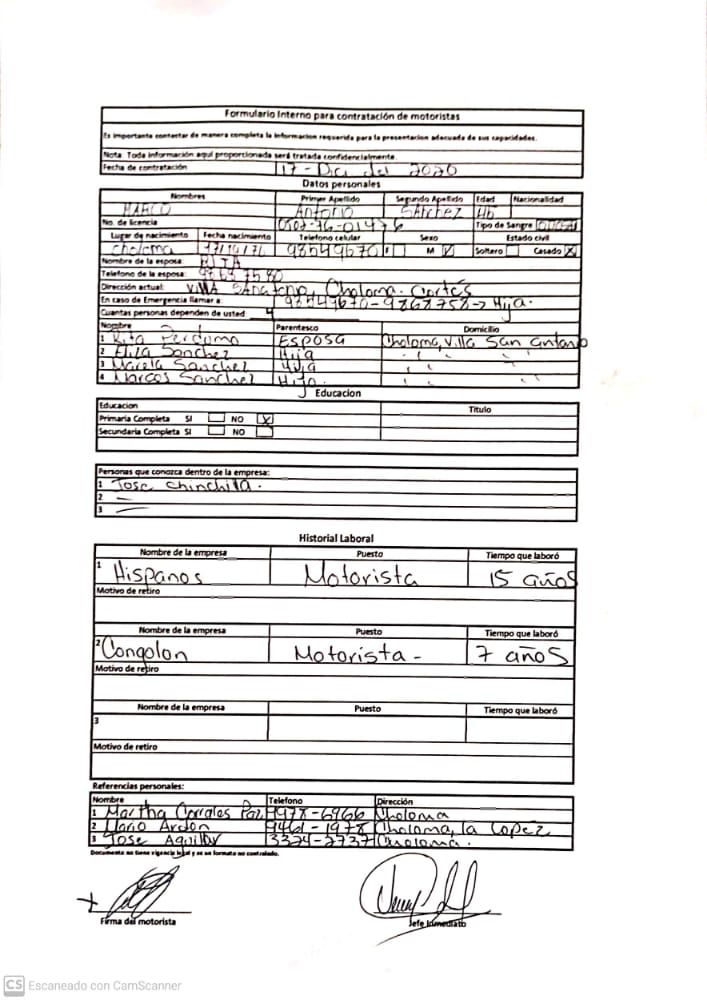 Formulario Interno para contratación de motoristas
Es importante contestar de manera completa la informacion requerida para la presentacion adecuada de sus capacidades.
Nota: Toda información aquí proporcionada será tratada confidencialmente.
Fecha de contratación 17 - Dic del 2020
Datos personales
Nombres Primer Apellido Segundo Apellido Edad Nacionalidad
MARCO Antonio SAnchez
No. de licencia 0502-76-01476 Tipo de Sangre
Lugar de nacimiento Fecha nacimiento Telefono celular Sexo Estado civil
Choloma 98549670 F M Soltero Casado X
Nombre de la esposa: RITA
Telefono de la esposa:
Dirección actual: Choloma. Cortés
En caso de Emergencia llamar a: 98549670 - Hija.
Cuantas personas dependen de usted 4
Nombre Parentesco Domicilio
1 Rita Perdomo Esposa Choloma, Villa San Antonio
2 Eliza Sanchez Hija
3 Sanchez Hija
4 Marcos Sanchez Hijo.
Educacion
Educacion Titulo
Primaria Completa SI NO X
Secundaria Completa SI NO
Personas que conozca dentro de la empresa:
1 Jose chinchilla.
2 —
3 —
Historial Laboral
Nombre de la empresa Puesto Tiempo que laboró
1 Hispanos Motorista 15 años
Motivo de retiro
Nombre de la empresa Puesto Tiempo que laboró
2 Congolon Motorista - 7 años
Motivo de retiro
Nombre de la empresa Puesto Tiempo que laboró
3
Motivo de retiro
Referencias personales:
Nombre Telefono Dirección
1 Martha Corrales Paz 9978-6966 Choloma
2 Mario Ardon 9461-1978 Choloma, la Lopez
3 Jose Aguilar 3324-2737 Choloma.
Documento no tiene vigencia legal y es un formato no controlado.
Firma del motorista Jefe Inmediato
CS Escaneado con CamScanner